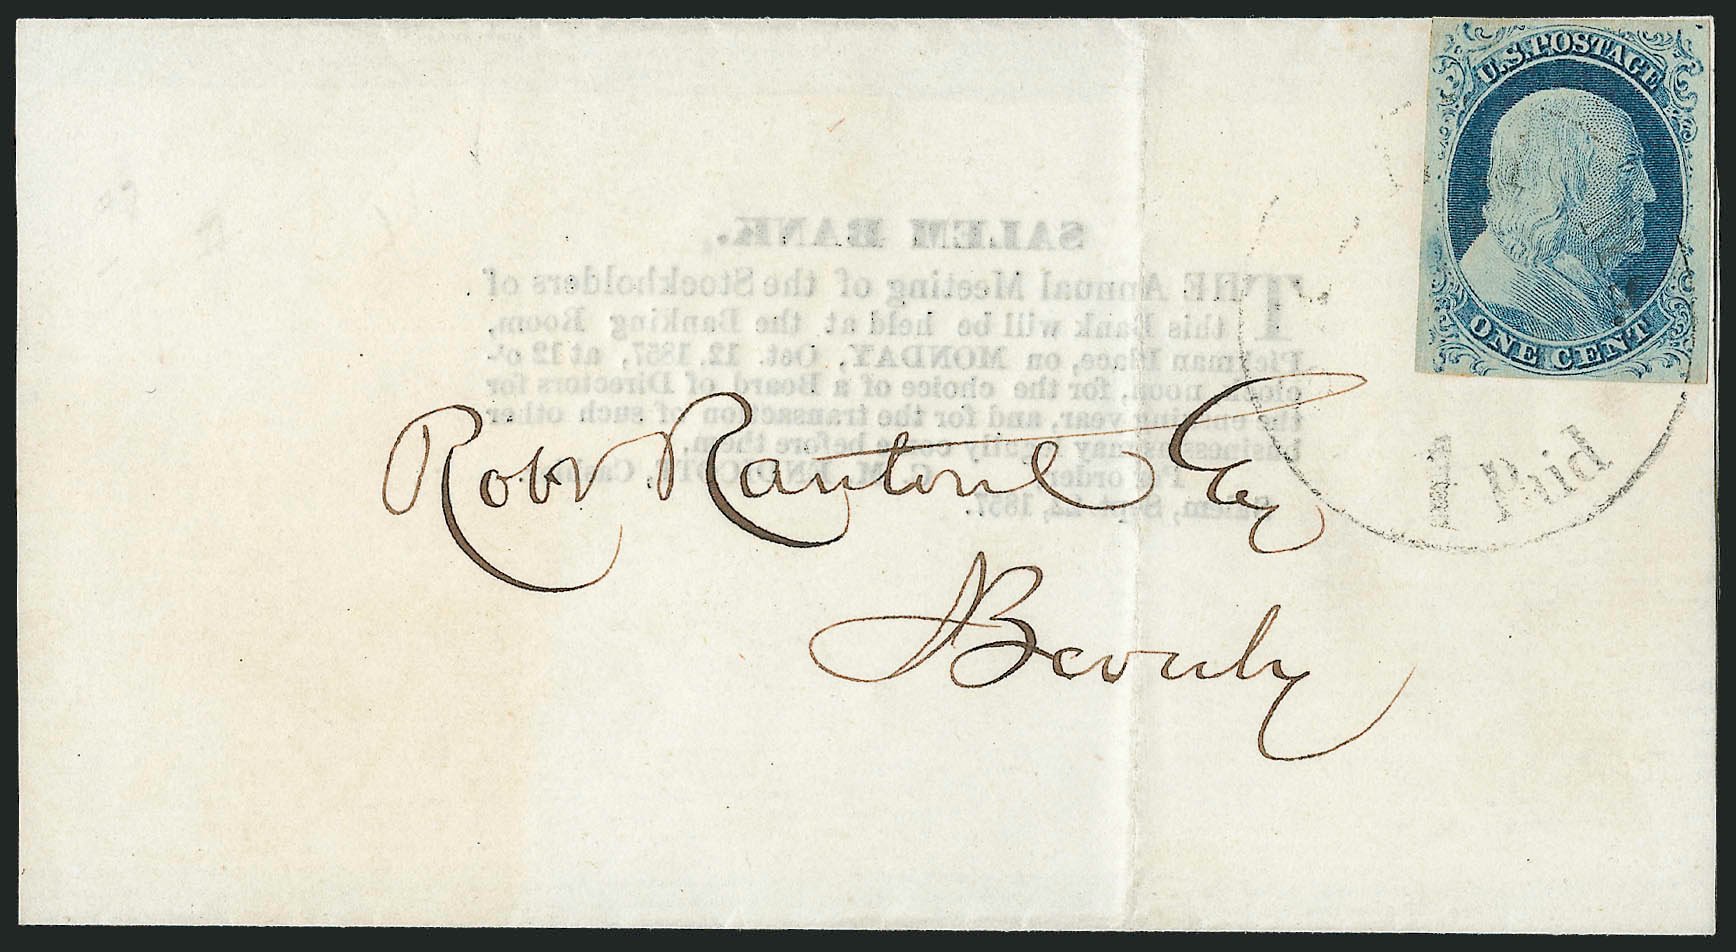 U.S. POSTAGE
ONE CENT
1 Paid
SALEM BANK.
THE Annual Meeting of the Stockholders of
this Bank will be held at the Banking Room,
Pickman Place, on MONDAY, Oct. 12, 1857, at 12 o'-
clock, noon, for the choice of a Board of Directors for
the ensuing year, and for the transaction of such other
business as may legally come before them.
Per order C. M. ENDICOTT, Cashier.
Salem, Sept. 22, 1857.
Robt Rantoul Esq
Beverly